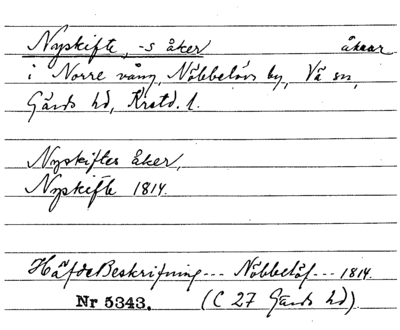 Nyskifte, -s åker åkrar
i Norre vång, Nöbbelövs by, Vä sn,
Gärds hd, Krstd. l.
Nyskiftes åker,
Nyskifte 1814.
HäfdeBeskrifning --- Nöbbelöf --- 1814.
Nr 5343. (C 27 Gärds hd)